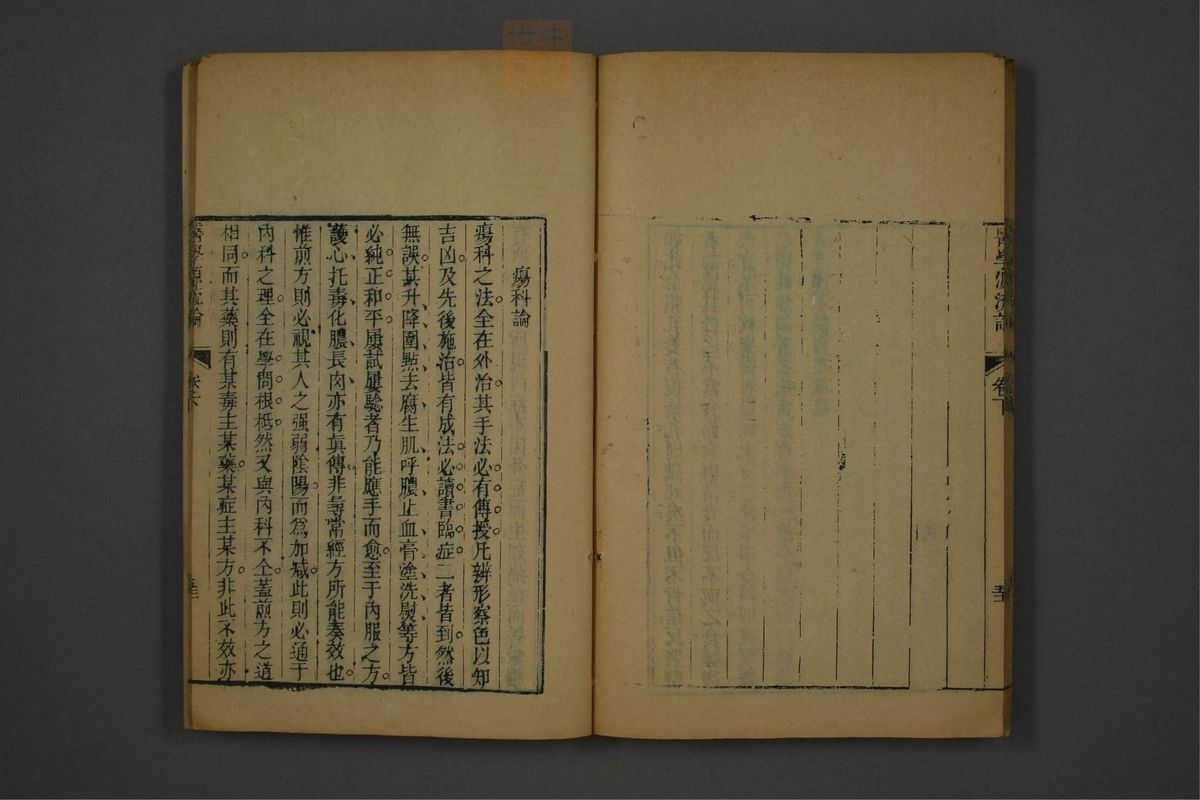 醫學源流論
卷下
瘍科論
瘍科之法全在外治其手法必有傳授凡辨形察色以知
吉凶及先後施治皆有成法必讀書臨症二者皆到然後
無誤其升降圍點去腐生肌呼膿止血膏塗洗熨等方皆
必純正和平屢試屢驗者乃能應手而愈至于內服之方
護心托毒化膿長肉亦有眞傳非尋常經方所能奏效也
惟煎方則必視其人之强弱陰陽而爲加减此則必通于
內科之理全在學問根柢然又與內科不仝蓋煎方之道
相同而其藥則有某毒主某藥某症主某方非此不效亦
醫學源流論